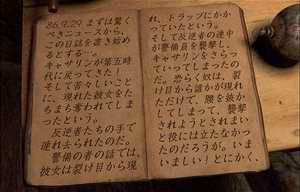 86.9.29 まずは驚く
べきニュースから、
この日誌を書き始め
るとする…。
キャサリンが第五時
代に戻ってきた！
そして苦々しいこと
に、現れた彼女をた
ちまち奪われてしま
ったという。
反逆者たちの手で
連れ去られたのだ。
警備の者の話では、
彼女は裂け目から現
れ、トラップにかか
っていたという。
そして反逆者の連中
が警備員を襲撃し、
キャサリンをさらっ
ていってしまったの
だ。恐らく奴は、裂
け目から誰かが現れ
ただけで、腰を抜か
してしまって、襲撃
されようとされまい
と役には立たなかっ
たのだろうが。いま
いましい！とにかく、